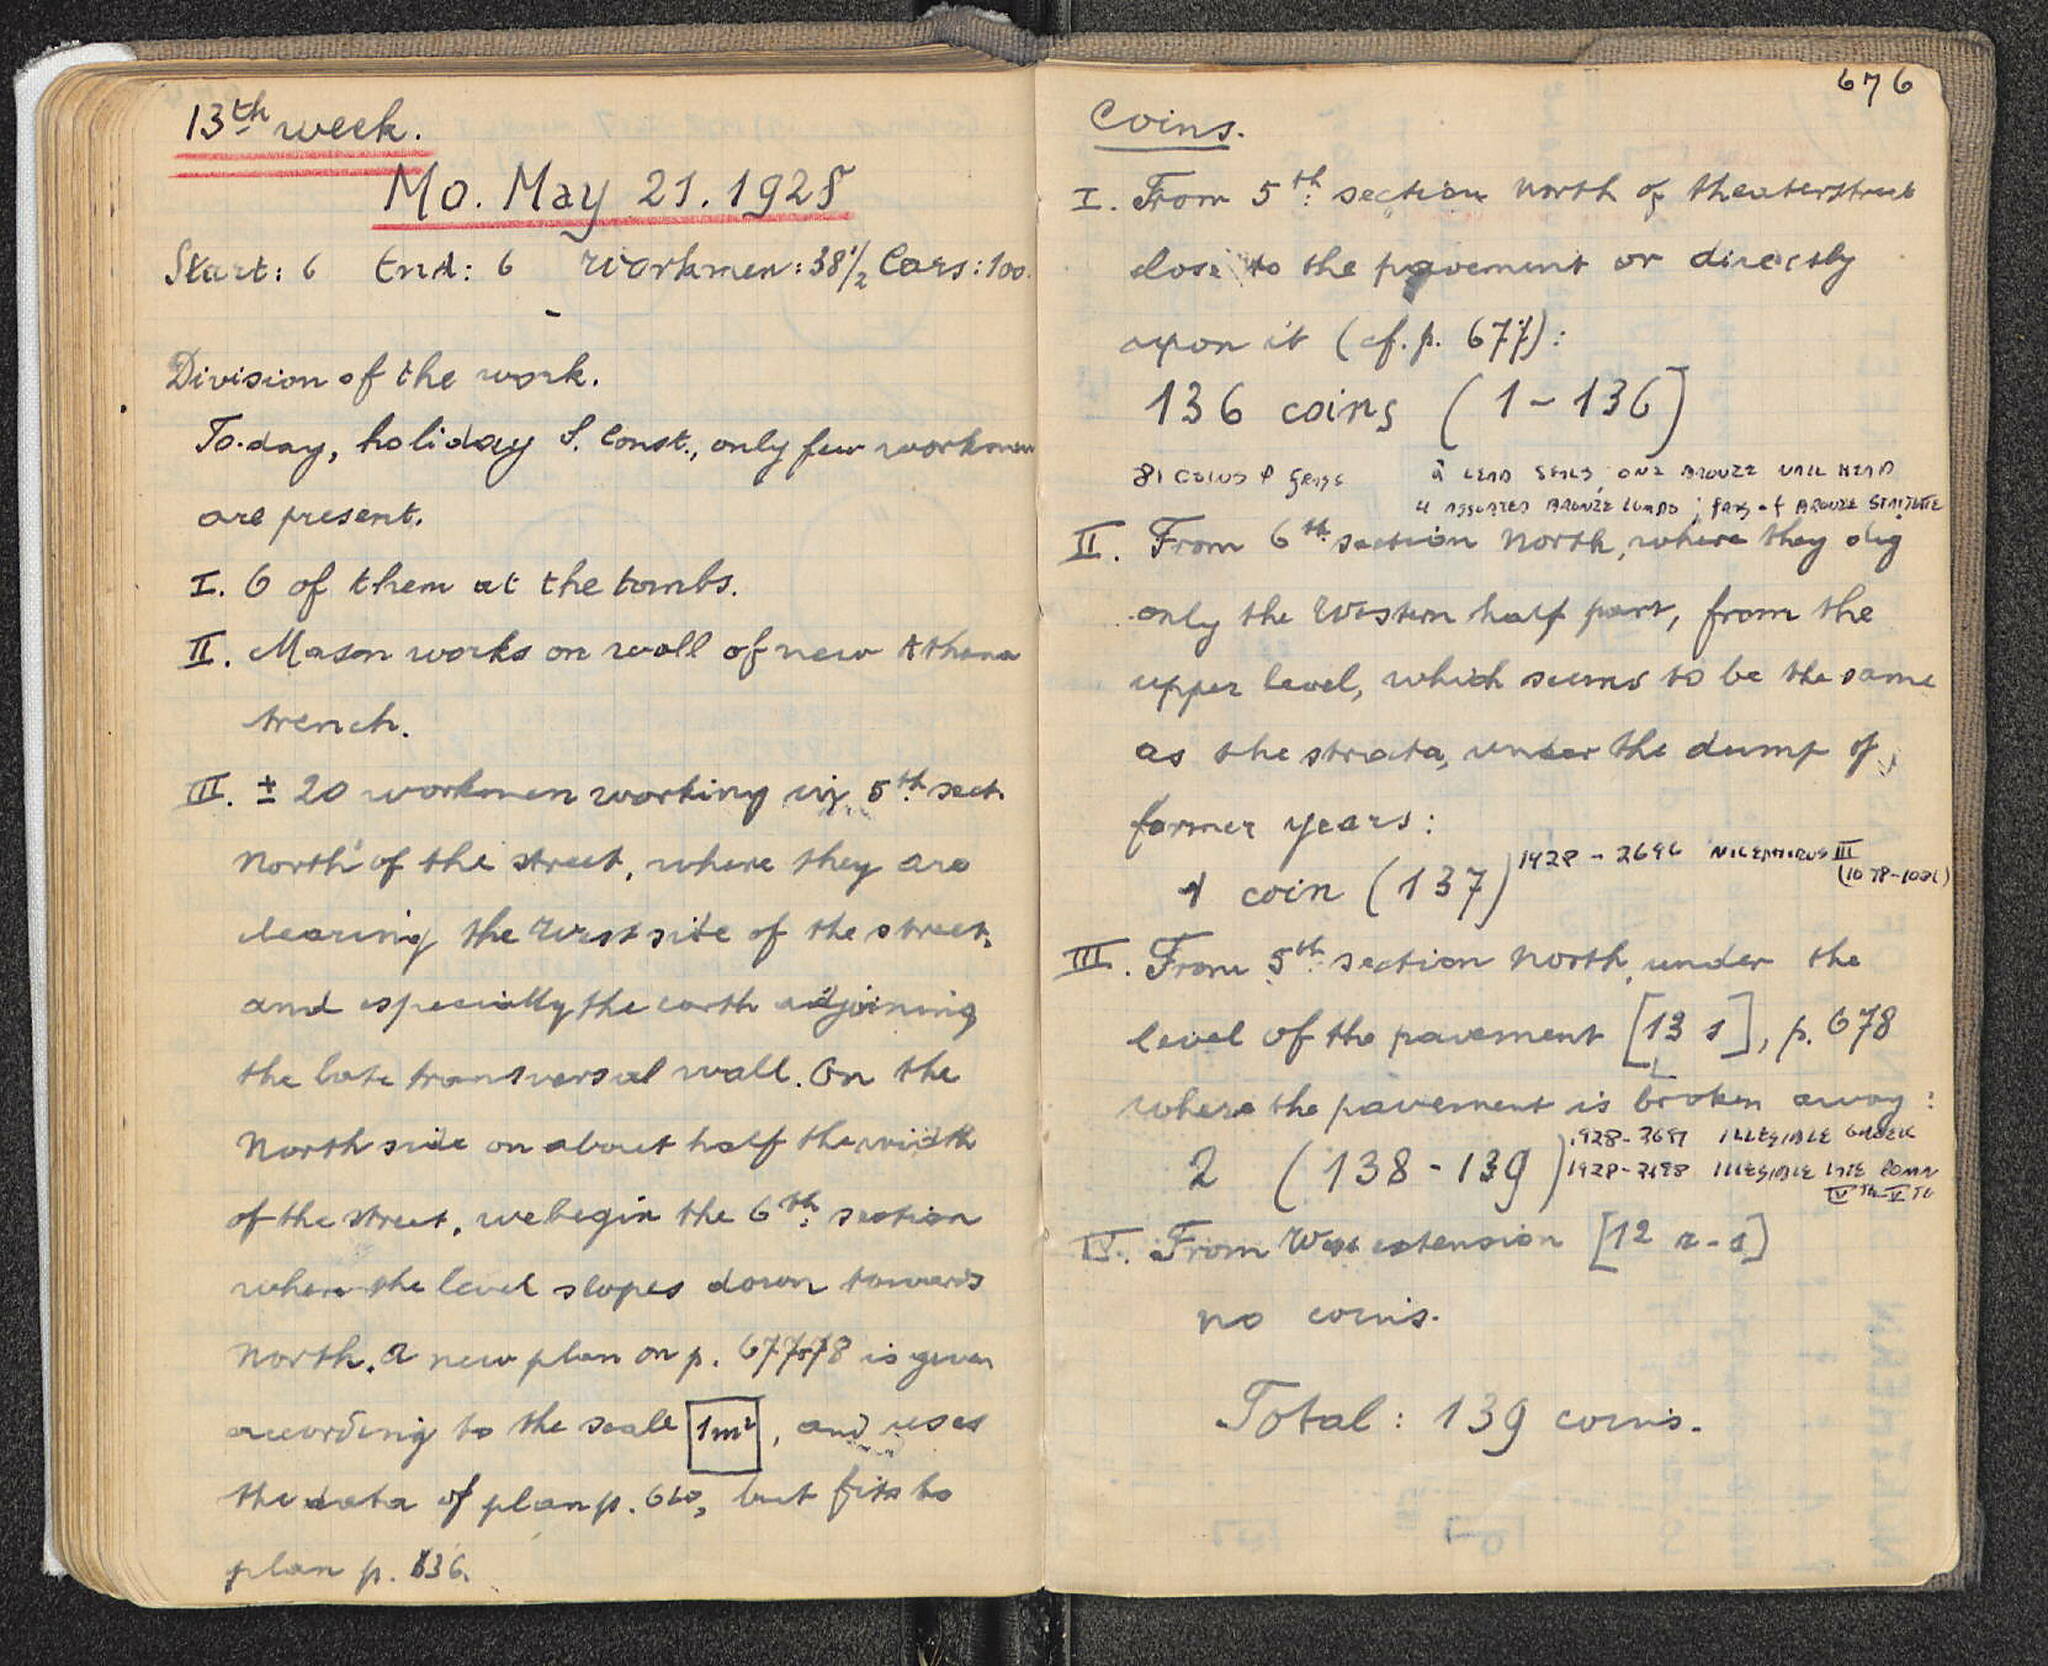 13th week.
Mo. May 21. 1928
Start: 6 End: 6 Workmen: 38 1/2 Cars: 100.
Division of the work.
To-day, holiday S. Const., only few workmen
are present.
I. 6 of them at the tombs.
II. Mason works on wall of new Athena
trench.
III. ± 20 workmen working in 5th sect.
North of the street, where they are
clearing the West side of the street,
and especially the earth adjoining
the late transversal wall. On the
North side on about half the width
of the street, we begin the 6th section
where the level slopes down towards
North. A new plan on p. 677-78 is given
according to the scale 1m², and uses
the data of plan p. 660, but fits to
plan p. 636.
676
Coins.
I. From 5th section North of theaterstreet
close to the pavement or directly
upon it (cf. p. 677):
136 coins (1-136)
81 COINS & frags LEAD SEALS, ONE BRONZE NAIL HEAD
4 ASSORTED BRONZE LUMPS; frag of BRONZE STATUETTE
II. From 6th section North, where they dig
only the Western half part, from the
upper level, which seems to be the same
as the strata, under the dump of
former years:
1 coin (137) 1928-2696 NICEPHORUS III
(1078-1081)
III. From 5th section North, under the
level of the pavement [13 s], p. 678
where the pavement is broken away:
1928-2697 ILLEGIBLE GREEK
2 (138-139) 1928-2698 ILLEGIBLE LATE ROMAN
IV TH-V TH
IV. From West extension [12 r-s]
no coins.
Total: 139 coins.